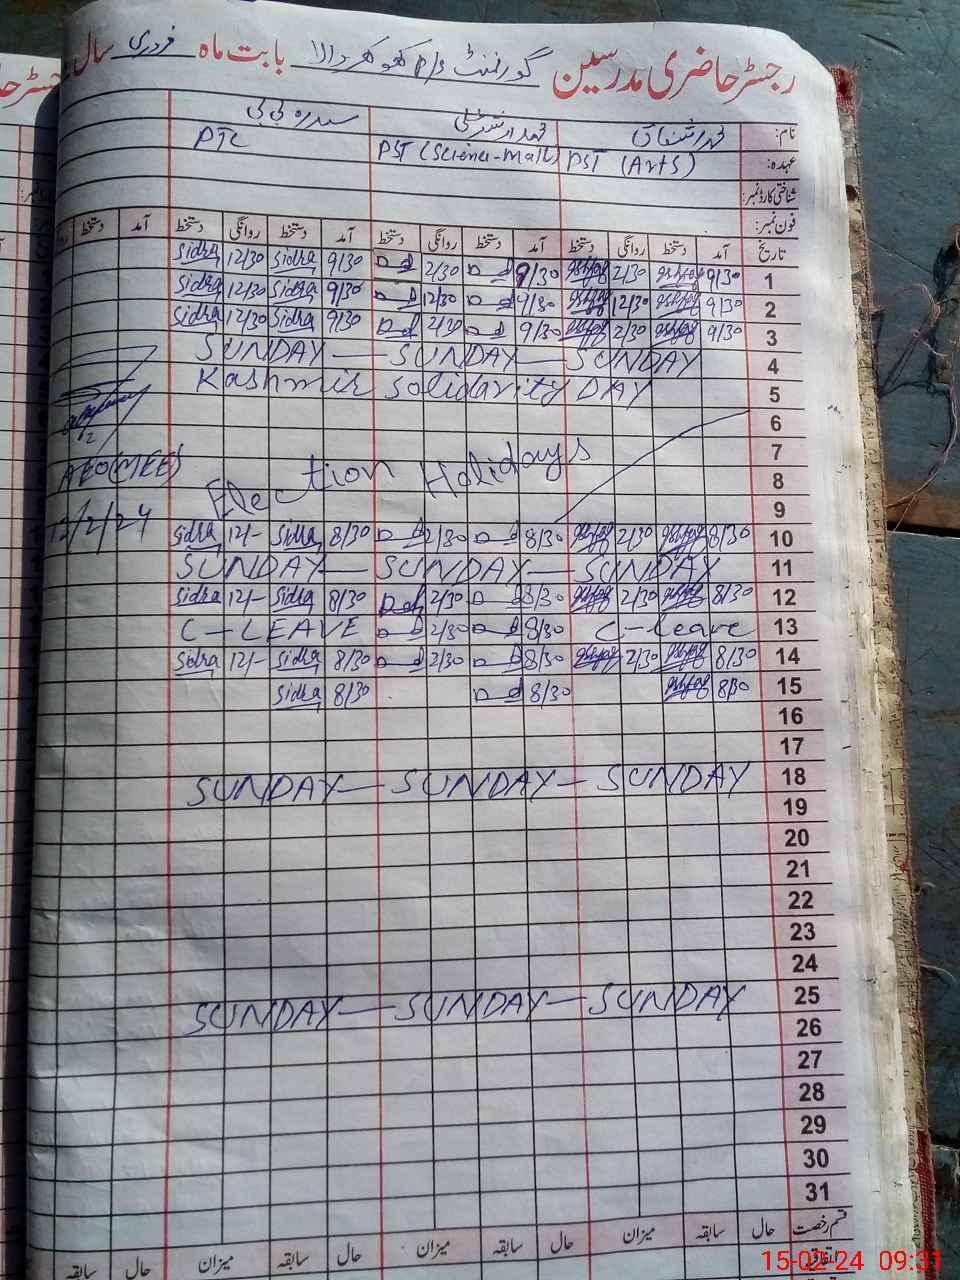 رجسٹر حاضری مدرسین گورنمنٹ P/S کھوکھر والا بابت ماہ فروری سال
نام: محمد اشفاق محمد ارشد علی سدرہ بی بی
عہدہ: PST (Arts) PST (Science-Math) PTC
شناختی کارڈ نمبر:
فون نمبر:
تاریخ آمد دستخط روانگی دستخط آمد دستخط روانگی دستخط آمد دستخط روانگی دستخط آمد دستخط
Sidra 12/30 Sidra 9/30 2/30 9/30 2/30 9/30 1
Sidra 12/30 Sidra 9/30 12/30 9/30 12/30 9/30 2
Sidra 12/30 Sidra 9/30 2/30 9/30 2/30 9/30 3
SUNDAY — SUNDAY — SUNDAY 4
Kashmir Solidarity DAY 5
6
7
AEO (MEE) Election Holidays 8
9
12/2/24 Sidra 12/- Sidra 8/30 2/30 8/30 2/30 8/30 10
SUNDAY — SUNDAY — SUNDAY 11
Sidra 12/- Sidra 8/30 2/30 8/30 2/30 8/30 12
C-LEAVE 2/30 8/30 C-Leave 13
Sidra 12/- Sidra 8/30 2/30 8/30 2/30 8/30 14
Sidra 8/30 8/30 8/30 15
16
17
SUNDAY — SUNDAY — SUNDAY 18
19
20
21
22
23
24
SUNDAY — SUNDAY — SUNDAY 25
26
27
28
29
30
31
قسم رخصت حال سابقہ میزان حال سابقہ میزان حال سابقہ میزان حال سابقہ
اتفاقیہ
15-02-24 09:31